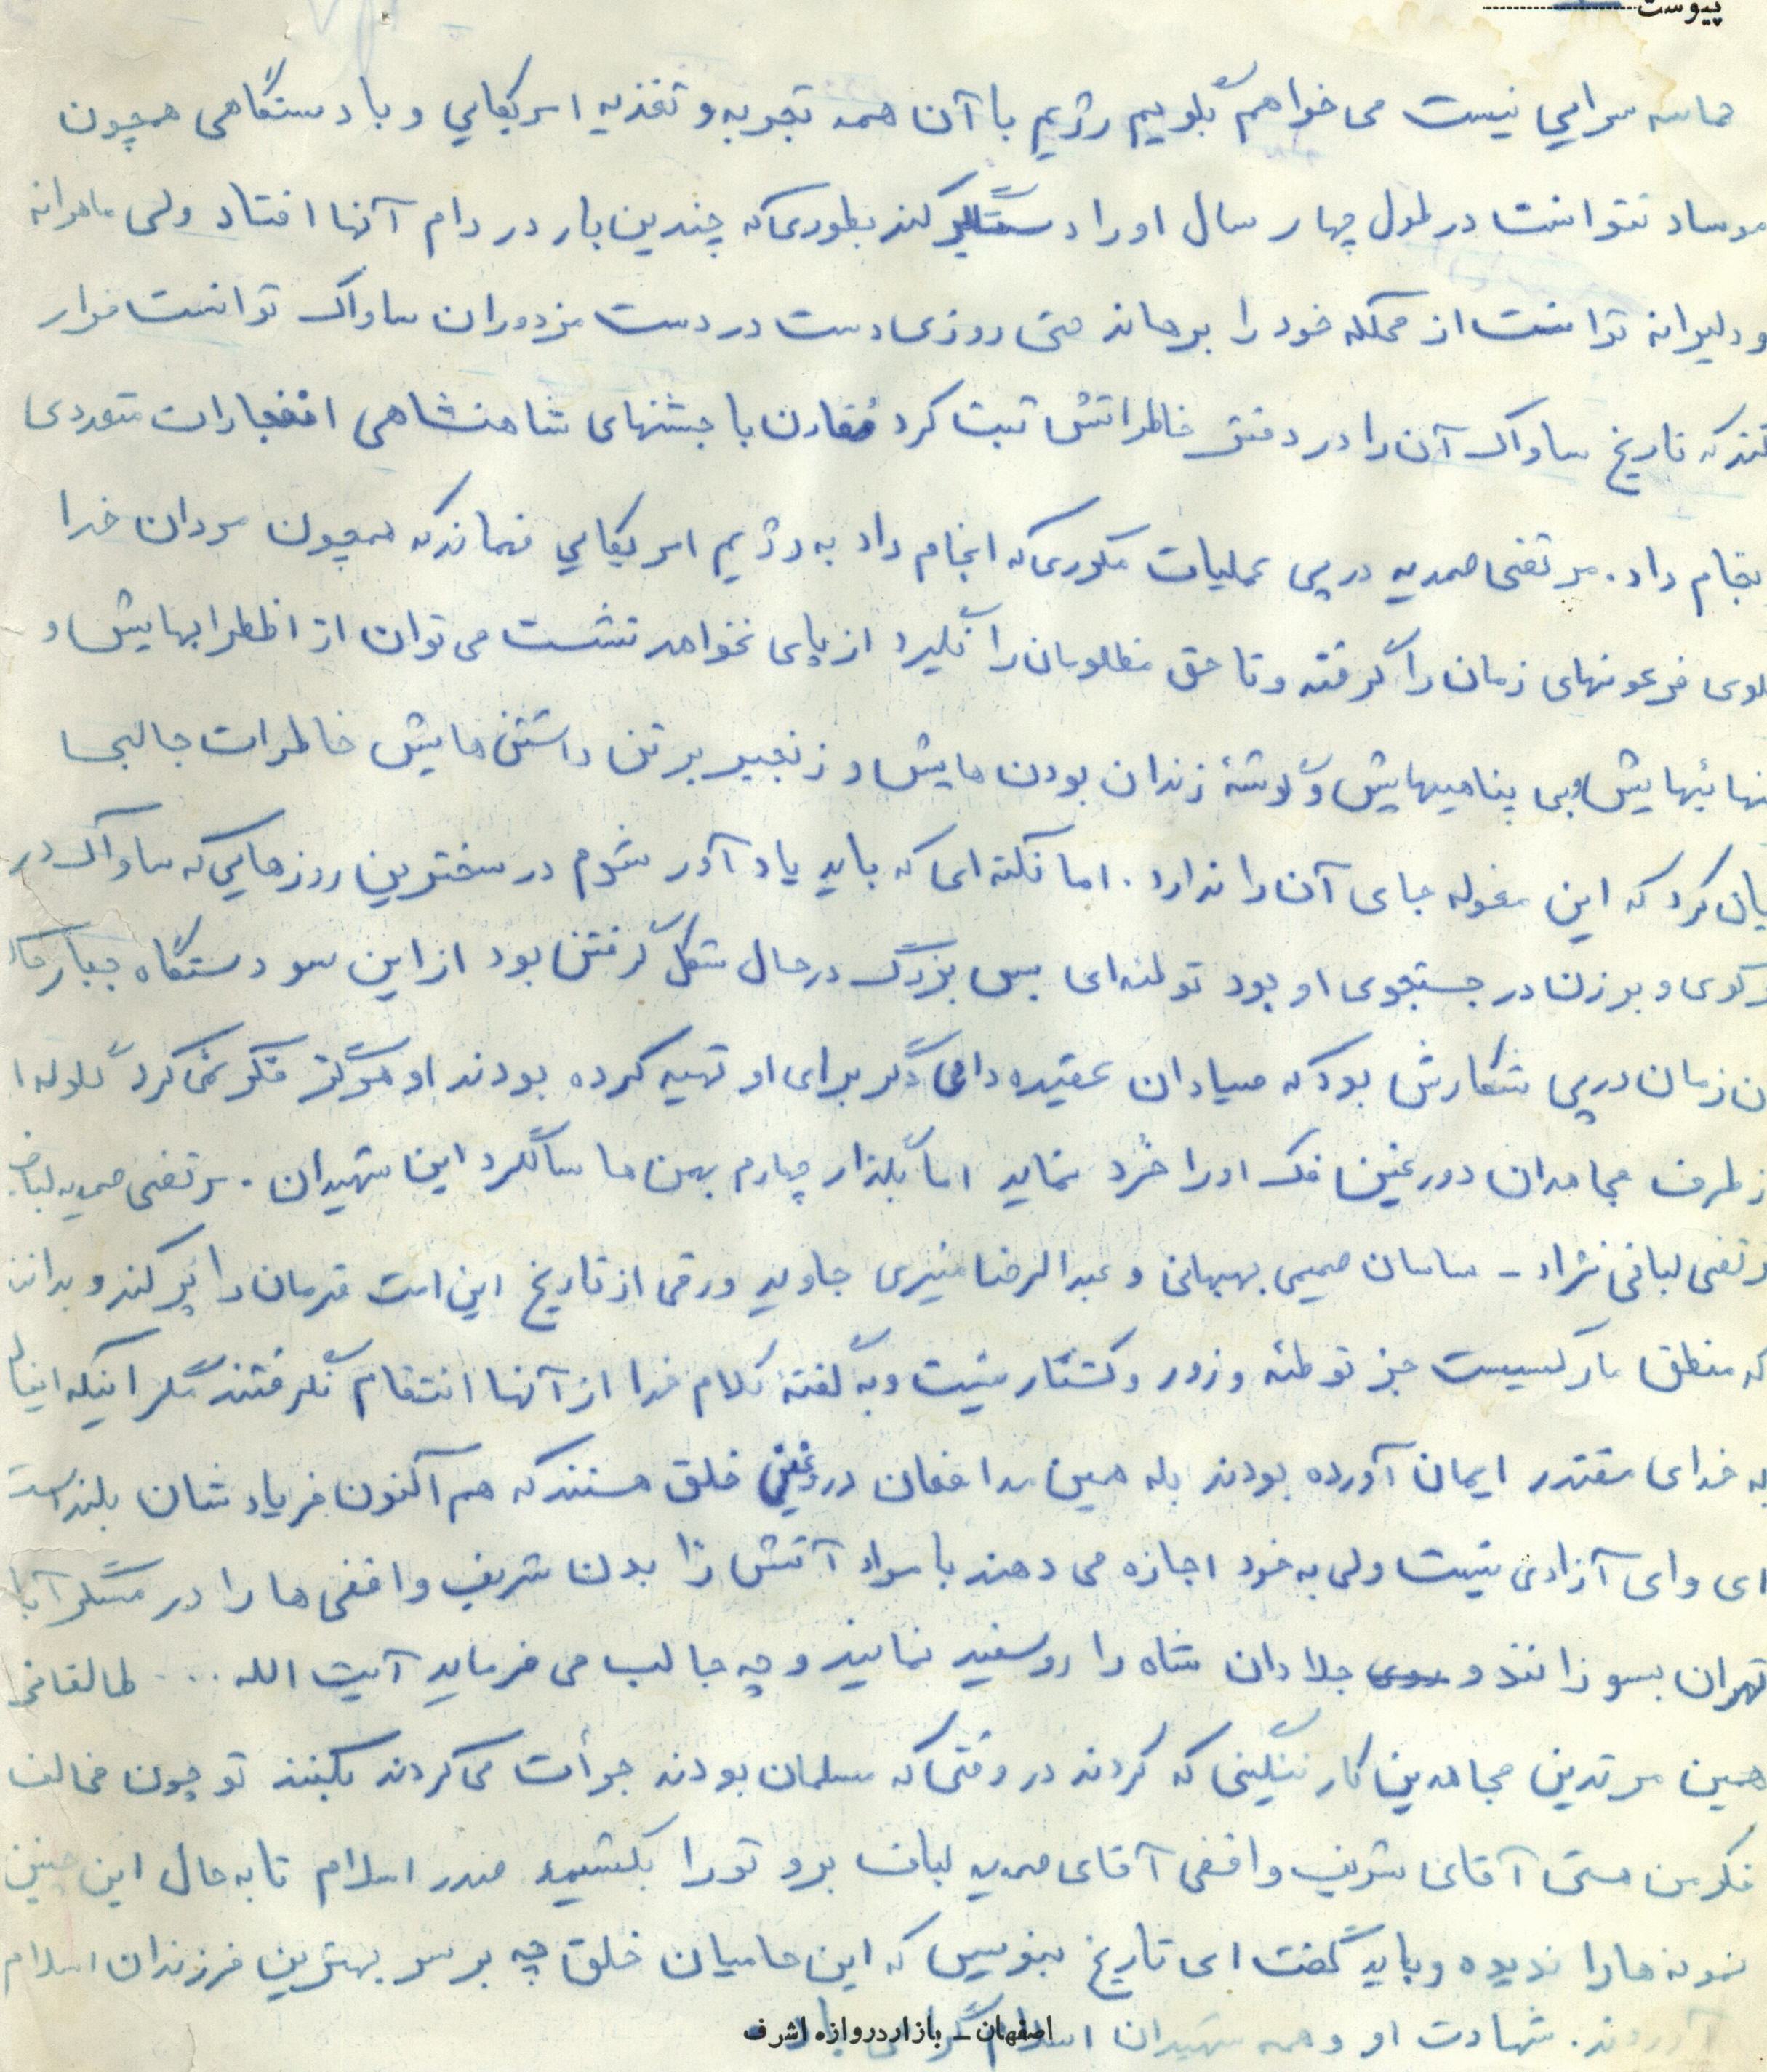 پیوست
حماسه سرایی نیست می خواهم بگویم رژیم با آن همه تجربه و تغذیه امریکایی و با دستگاهی همچون
موساد نتوانست در طول چهار سال او را دستگیر کند بطوری که چندین بار در دام آنها افتاد ولی ماهرانه
و دلیرانه توانست از مهلکه خود را برهاند حتی روزی دست در دست مزدوران ساواک توانست فرار
کند که تاریخ ساواک آن را در دفتر خاطراتش ثبت کرد مقارن با جشنهای شاهنشاهی انفجارات متعددی
انجام داد. مرتضی صمدیه در پی عملیات مکرری که انجام داد به رژیم امریکایی فهماند که همچون مردان خدا
گلوی فرعونهای زمان را گرفته و تا حق مظلومان را نگیرد از پای نخواهد نشست می توان از اظطرابهایش و
تنهائیهایش و بی پناهیهایش و گوشهٔ زندان بودن هایش و زنجیر بر تن داشتن هایش خاطرات جالبی
بیان کرد که این مغوله جای آن را ندارد. اما نکته ای که باید یادآور شوم در سختترین روزهایی که ساواک در
هر کوی و برزن در جستجوی او بود توطئه ای بس بزرگ در حال شکل گرفتن بود از این سو دستگاه جبار
آن زمان در پی شکارش بود که صیادان عقیده دامی دگر برای او تهیه کرده بودند او هرگز فکر نمی کرد گلوله ا
ز طرف مجاهدان دورغین فک او را خُرد نماید اما بگذار چهارم بهمن ما سالگرد این شهیدان. مرتضی صمدیه لباف
مرتضی لبافی نژاد - ساسان صمیمی بهبهانی و عبدالرضا منیری جاوید ورقی از تاریخ این امت قهرمان را پر کند و بدانند
که منطق مارکسیست جز توطئه و زور و کشتار نیست و به گفتهٔ کلام خدا از آنها انتقام نگرفتند مگر اینکه اینها
به خدای مقتدر ایمان آورده بودند بله همین مدافعان دروغین خلق هستند که هم اکنون فریادشان بلند است
ای وای آزادی نیست ولی به خود اجازه می دهند با مواد آتش زا بدن شریف واقفی ها را در مسگرآباد
تهران بسوزانند و روی جلادان شاه را روسفید نمایند و چه جالب می فرماید آیت الله ... طالقانی
همین مرتدین مجاهدین کار ننگینی که کردند در وقتی که مسلمان بودند جرأت می کردند بکنند تو چون مخالف
فکر من هستی آقای شریف واقفی آقای صمدیه لباف برو تو را بکشیم صدر اسلام تا به حال این چنین
نمونه ها را ندیده و باید گفت ای تاریخ بنویس که این حامیان خلق چه بر سر بهترین فرزندان اسلام
آوردند. شهادت او و همه شهیدان اسلام گرامی باد
اصفهان - بازار دروازه اشرف